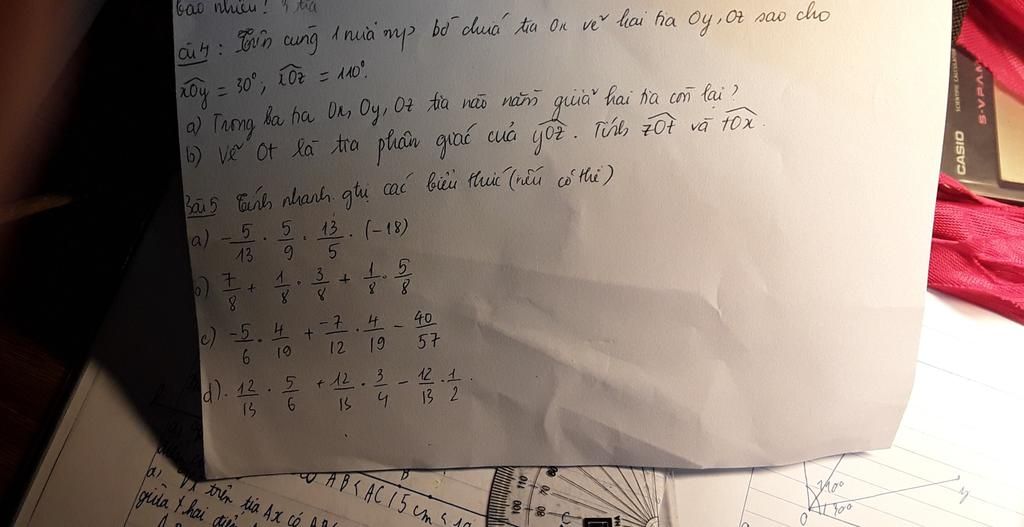 bao nhiêu? 3 tia
Câu 4 : Trên cùng 1 nửa mp bờ chứa tia Ox vẽ hai tia Oy, Oz sao cho
xOy = 30°, xOz = 110°.
a) Trong ba tia Ox, Oy, Oz tia nào nằm giữa hai tia còn lại?
b) Vẽ Ot là tia phân giác của yOz. Tính zOt và tOx.
Bài 5 Tính nhanh gtrị các biểu thức (nếu có thể)
a) -5/13 . 5/9 . 13/5 . (-18)
b) 7/8 + 1/8 . 3/8 + 1/8 . 5/8
c) -5/6 . 4/19 + -7/12 . 4/19 - 40/57
d). 12/13 . 5/6 + 12/13 . 3/4 - 12/13 . 1/2.
CASIO
SCIENTIFIC CALCULATOR
S-VPAM
AB < AC (5cm <
trên tia Ax có
giữa 2 hai điểm
110 100 80 70 60
80
O
y
30°